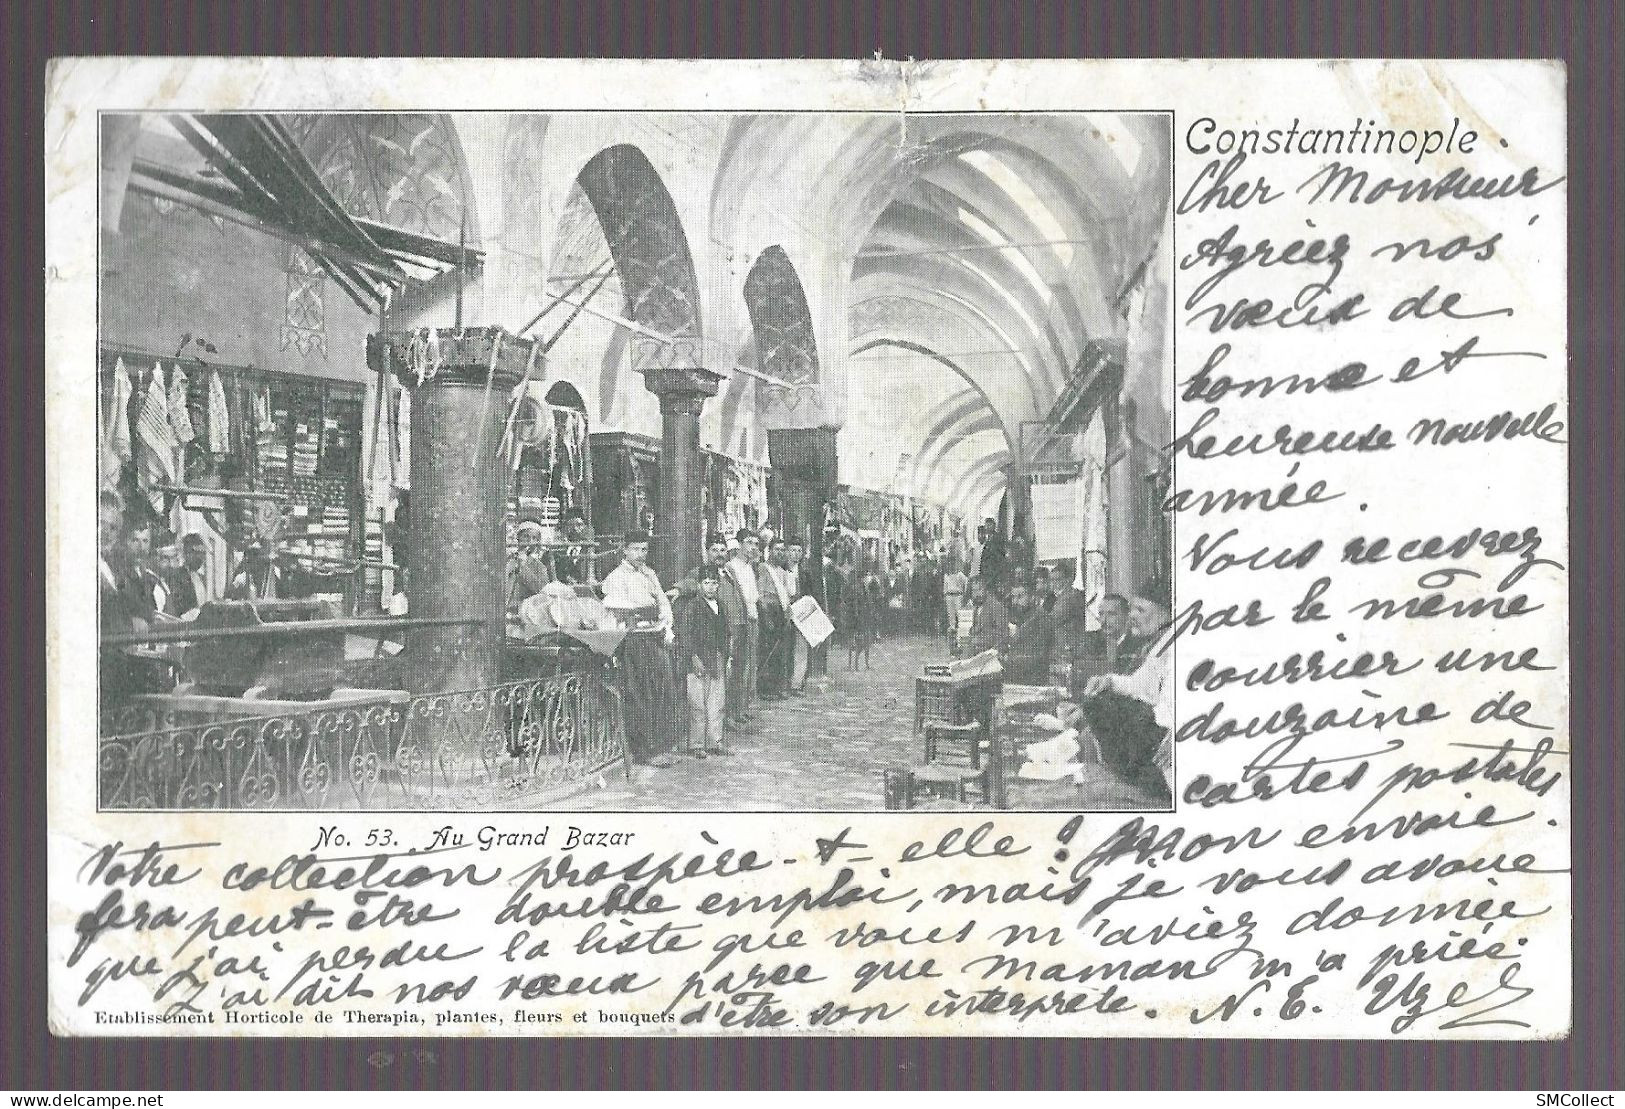 Constantinople.
Cher Monsieur
Agréez nos
vœux de
bonne et
heureuse nouvelle
année.
Vous recevrez
par le même
courrier une
douzaine de
cartes postales
No. 53. Au Grand Bazar
Votre collection prospère-t-elle? Mon envoie.
fera peut-être double emploi, mais je vous avoue
que j'ai perdu la liste que vous m'aviez donnée
J'ai dit nos vœux parce que maman m'a priée.
Etablissement Horticole de Therapia, plantes, fleurs et bouquets
d'être son interprète. N. E.
delcampe.net
SMCollect